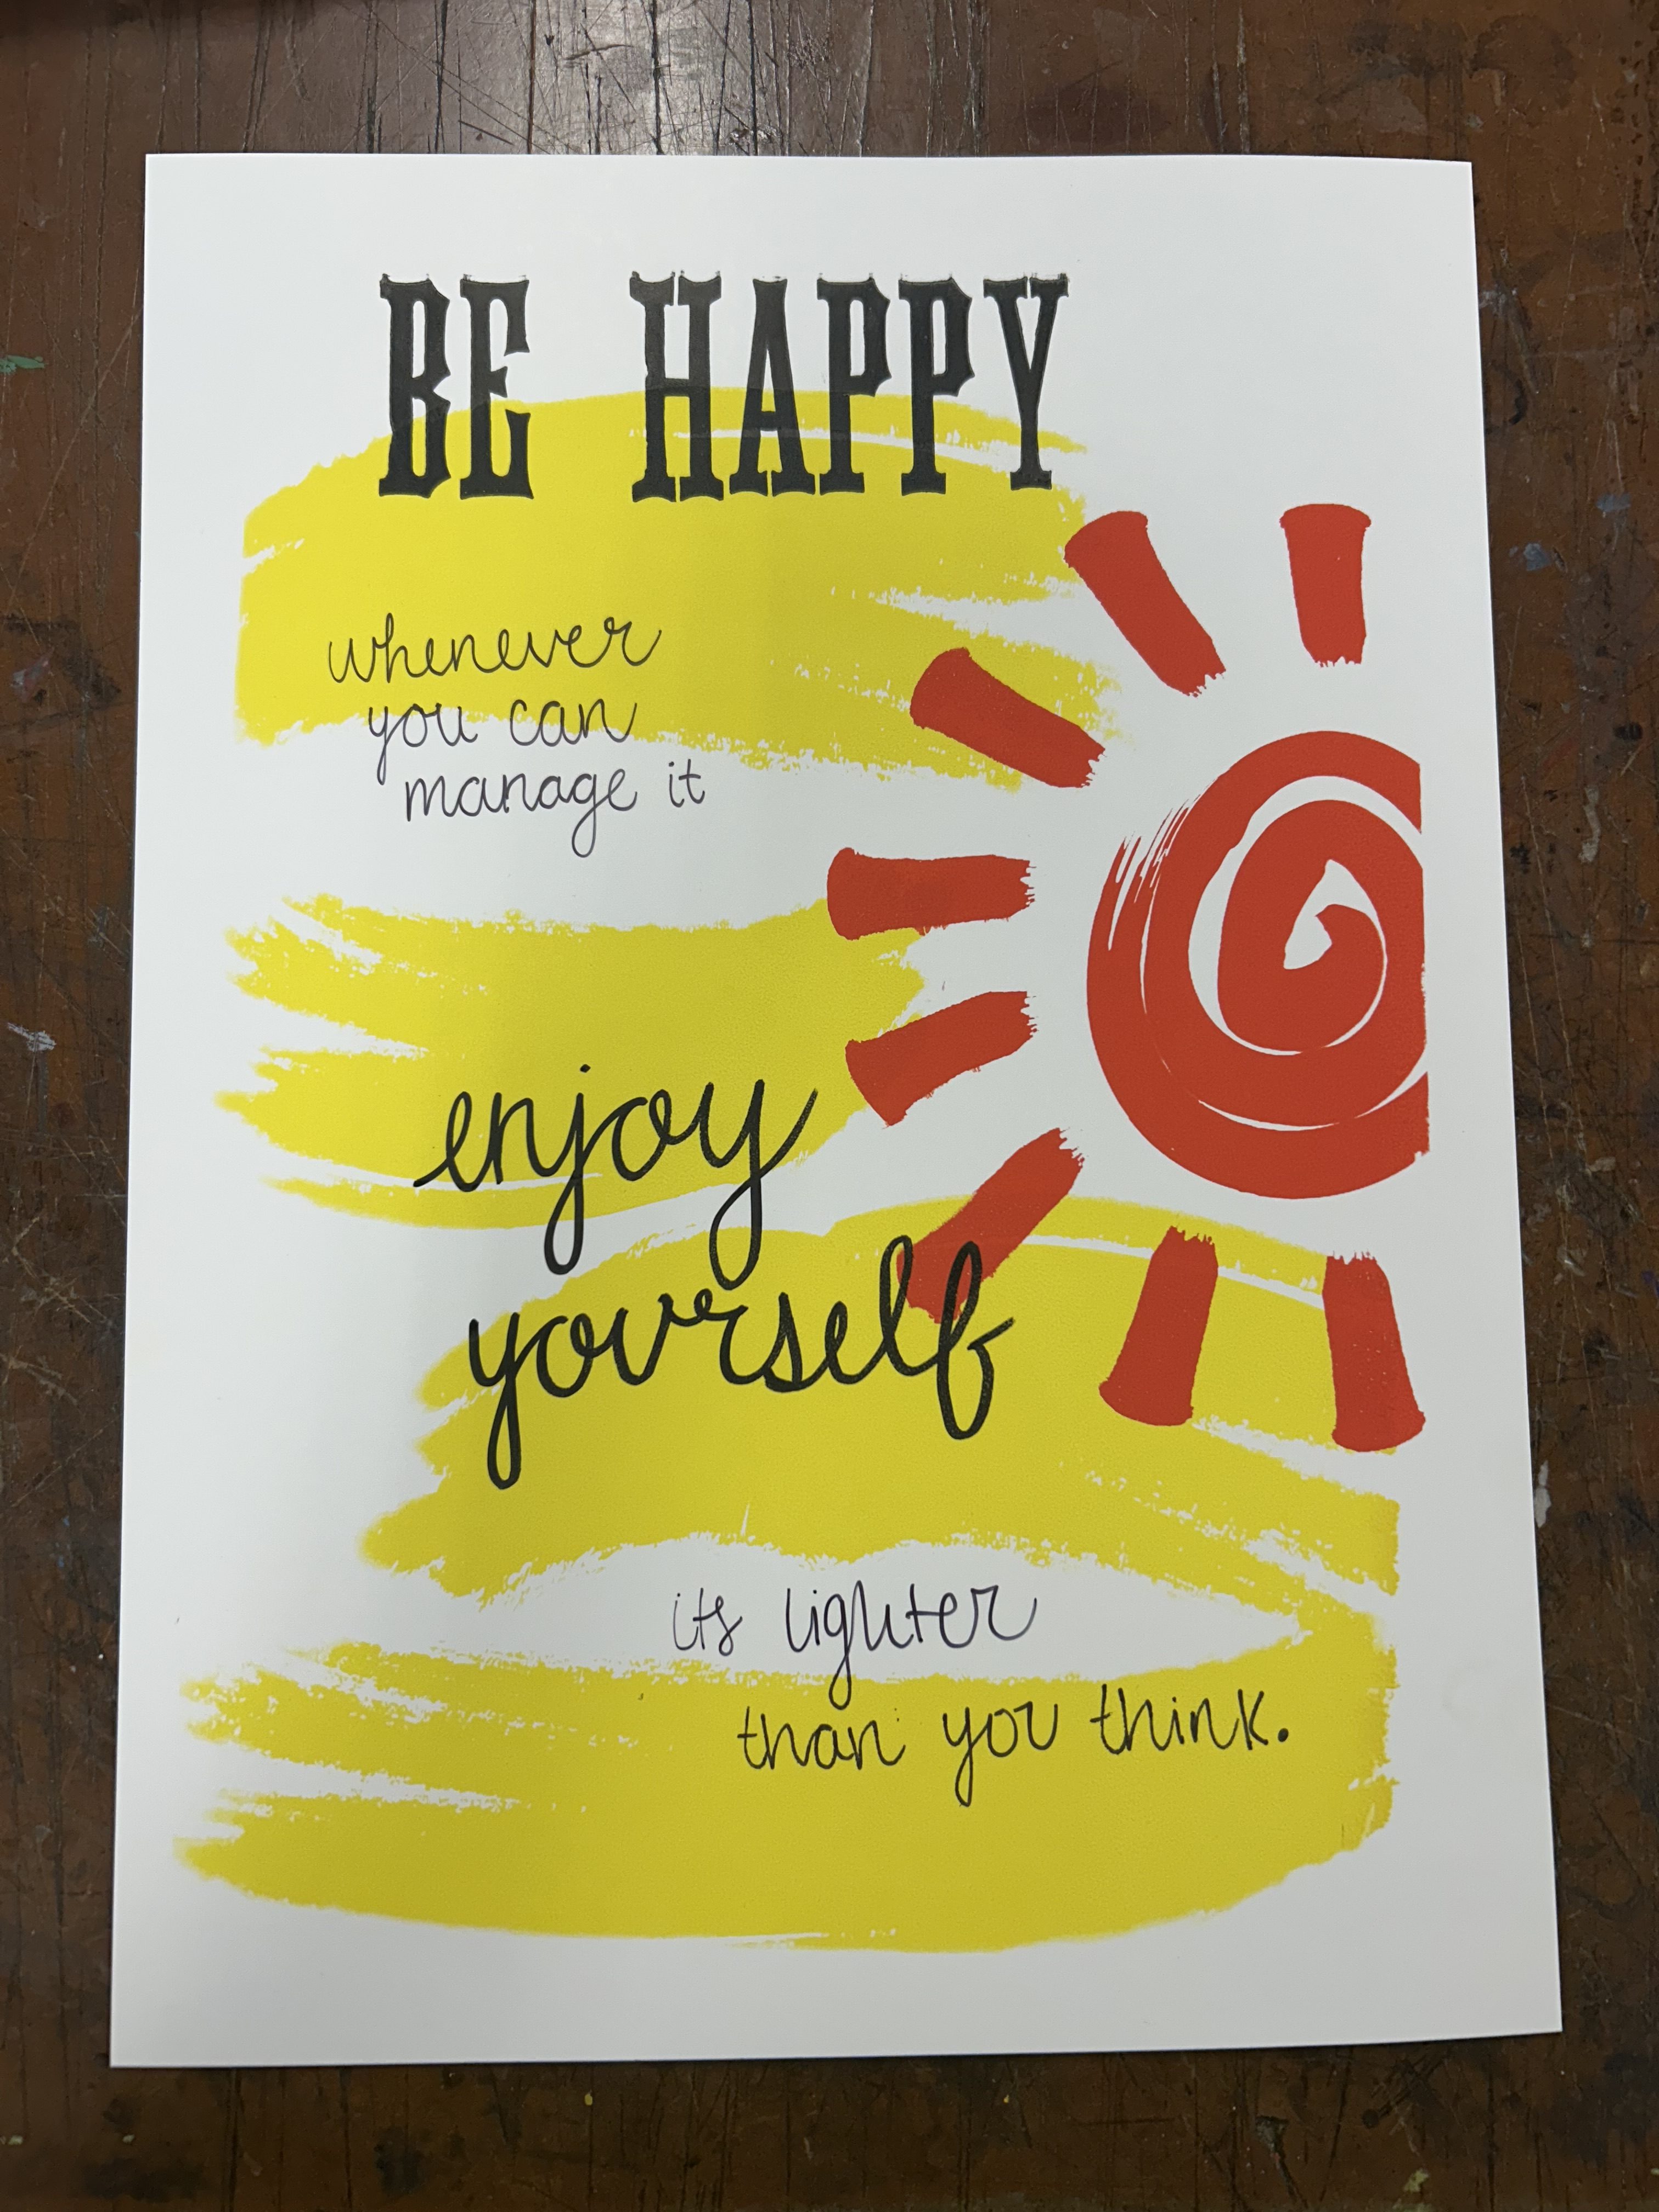 BE HAPPY
whenever
you can
manage it
enjoy
yourself
its lighter
than you think.